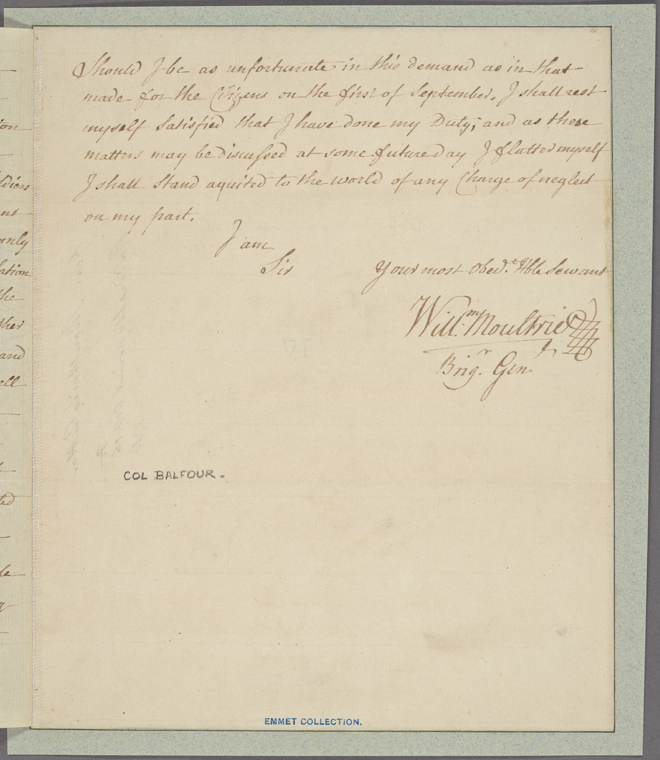 Should I be as unfortunate in this demand as in that
made for the Citizens on the first of September, I shall rest
myself Satisfied that I have done my Duty; and as these
matters may be discussed at some future day I flatter myself
I shall Stand aquited to the world of any Charge of neglect
on my part.
I am
Sir
Your most Obedt. Hble Servant
Willm. Moultrie
Brigr. Gen
COL BALFOUR.
EMMET COLLECTION.
ion
diers
ent
only
ation
the
ther
and
ell
ted